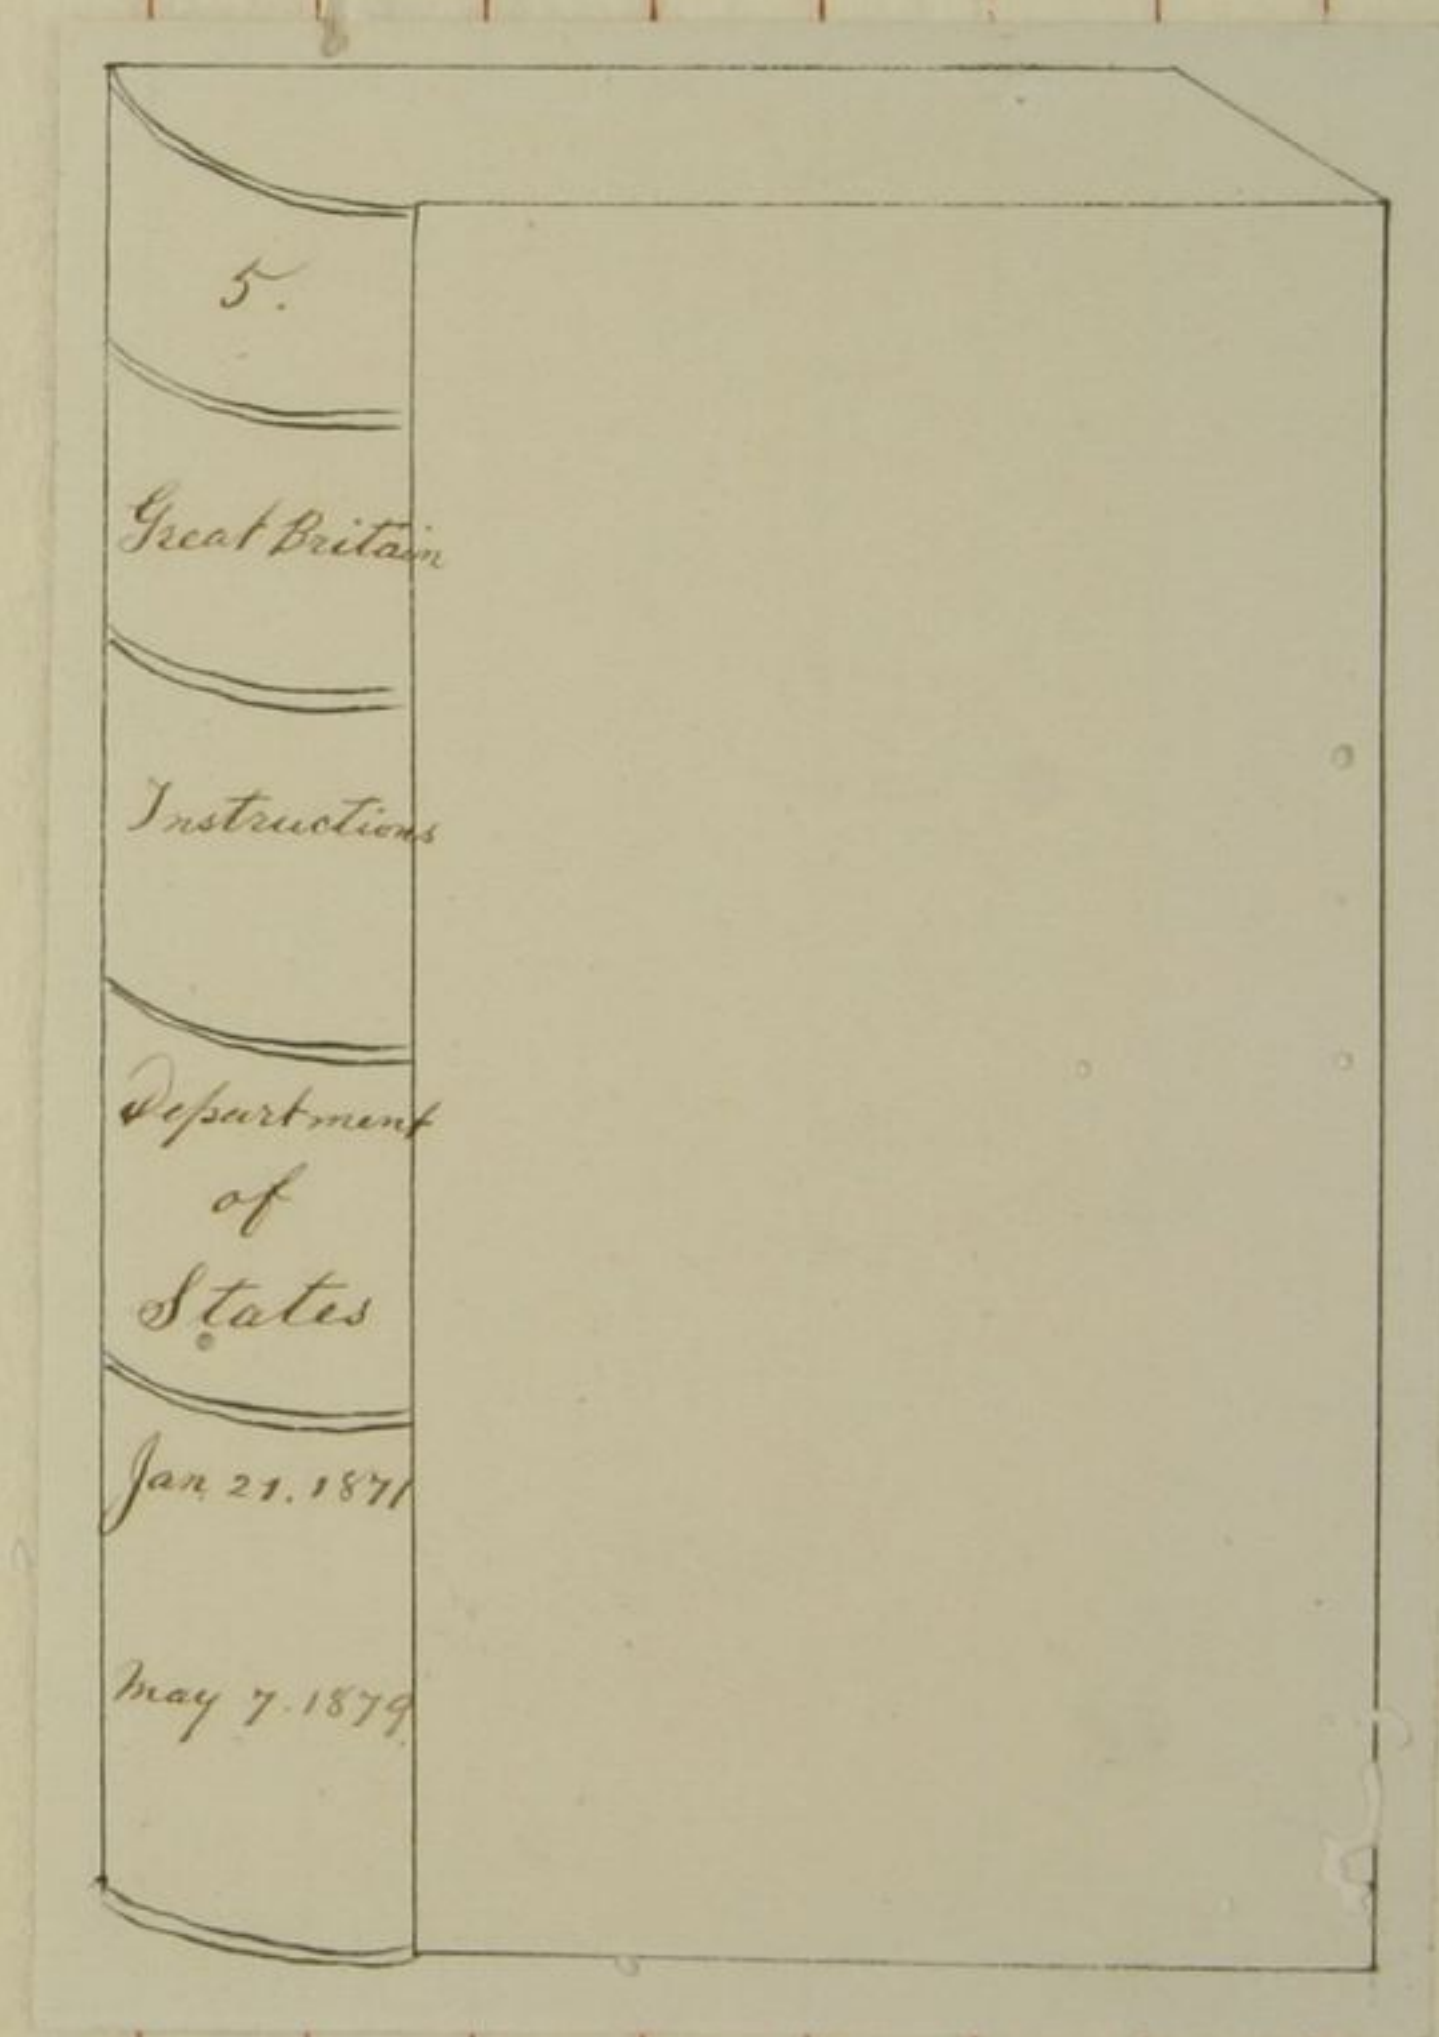 5.
Great Britain
Instructions
Department
of
States
Jan. 21. 1871
May 7. 1879.